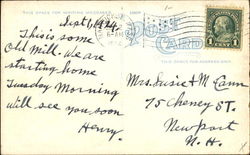 THIS SPACE FOR WRITING MESSAGES
POST CARD
THIS SPACE FOR ADDRESS ONLY
1
Sept 1, 1924
This is some
Old Mill. We are
starting home
Tuesday Morning
will see you soon
Henry.
Mrs. Susie M Cann
75 Cheney ST.
Newport
N. H.